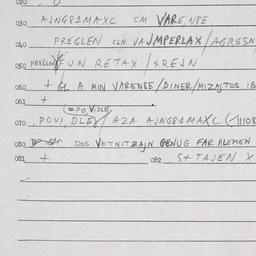 020
030 AJNGRIMAXC CM VARE,NTE
040 PREGLEN CLN VAJMPERLAX/AGRESN
050 PREGLEN FUN RETAX/XREJN
060 + GL A MIN VARENSE/DINER/MIZAJTOS IB
061 +
(=PO,VIDLE)
070 POVI,DLEX/AZA AJNGRIMAXC (TIIOR
080 DOS VETNITZAJN GENUG FAR ALEMEN
081 + 082 S+TAJEN X